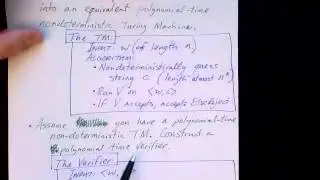 into an equivalent polynomial-time
nondeterministic Turing Machine.
The TM
INPUT: w (of length n)
ALGORITHM:
• Nondeterministically guess
string C (length almost n^k)
• Run V on <w,c>
• If V Accepts, accept Else Reject
• Assume you have a polynomial-time
non-deterministic TM. Construct a
polynomial time verifier.
The Verifier
INPUT: <w,